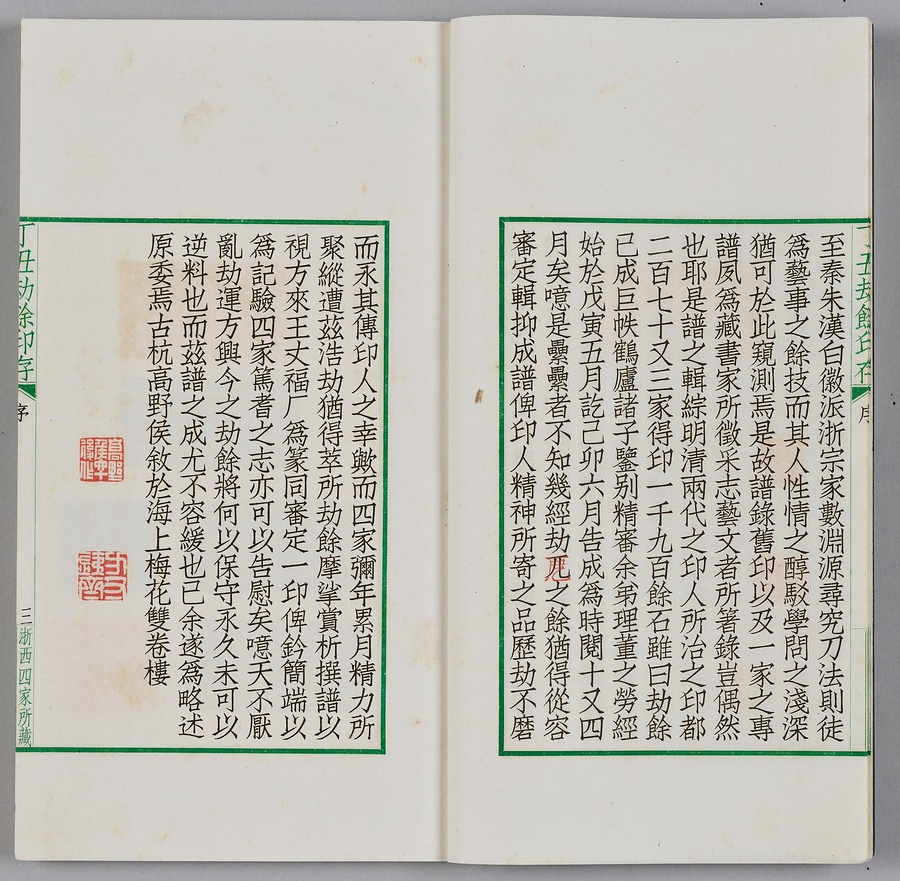 丁丑劫餘印存
序
至秦朱漢白徽派浙宗家數淵源尋究刀法則徒
爲藝事之餘技而其人性情之醇駁學問之淺深
猶可於此窺測焉是故譜錄舊印以及一家之專
譜夙爲藏書家所徵采志藝文者所箸錄豈偶然
也耶是譜之輯綜明清兩代之印人所治之印都
二百七十又三家得印一千九百餘石雖曰劫餘
已成巨帙鶴廬諸子鑒别精審余弟理董之勞經
始於戊寅五月訖己卯六月告成爲時閱十又四
月矣噫是纍纍者不知幾經劫厄之餘猶得從容
審定輯抑成譜俾印人精神所寄之品歷劫不磨
而永其傳印人之幸歟而四家彌年累月精力所
聚縱遭茲浩劫猶得萃所劫餘摩挲賞析撰譜以
視方來王丈福厂爲篆同審定一印俾鈐簡端以
爲記驗四家篤耆之志亦可以告慰矣噫天不厭
亂劫運方興今之劫餘將何以保守永久未可以
逆料也而茲譜之成尤不容緩也已余遂爲略述
原委焉古杭高野侯敘於海上梅花雙卷樓
丁丑劫餘印存
序
三
浙西四家所藏